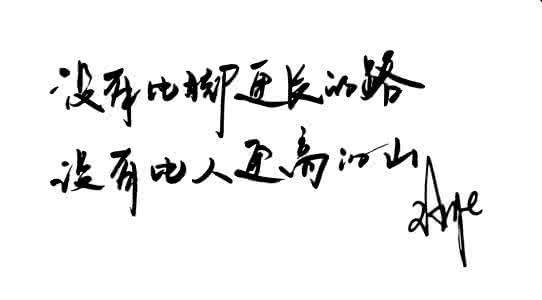 没有比脚更长的路
没有比人更高的山